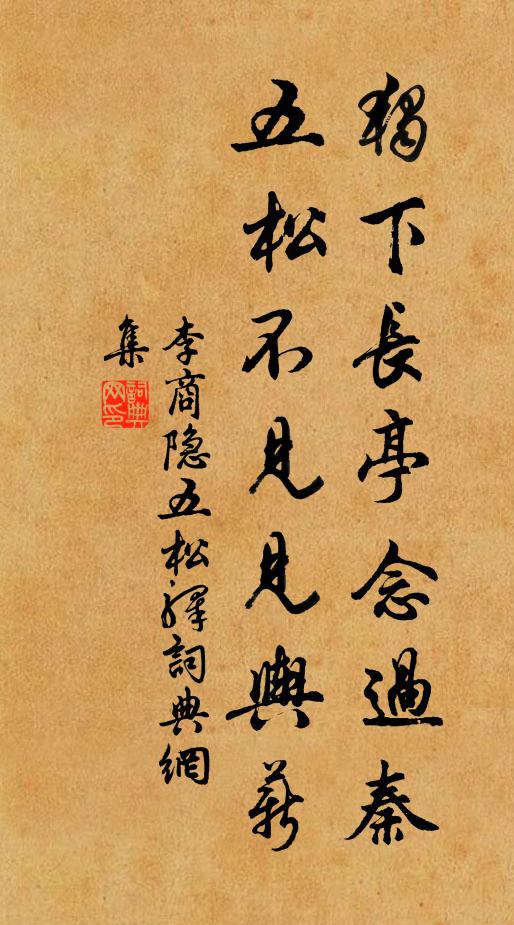 獨下長亭念過秦
五松不見見輿薪
李商隐五松驛詞典網
集
詞典網印